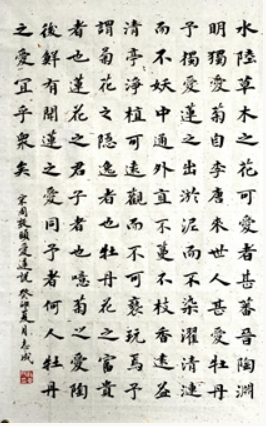 水陸草木之花可愛者甚蕃晉陶淵
明獨愛菊自李唐來世人甚愛牡丹
予獨愛蓮之出淤泥而不染濯清漣
而不妖中通外直不蔓不枝香遠益
清亭淨植可遠觀而不可褻玩焉予
謂菊花之隱逸者也牡丹花之富貴
者也蓮花之君子者也噫菊之愛陶
後鮮有聞蓮之愛同予者何人牡丹
之愛冝乎衆矣
宋周敦頤愛蓮說 癸卯夏月志成